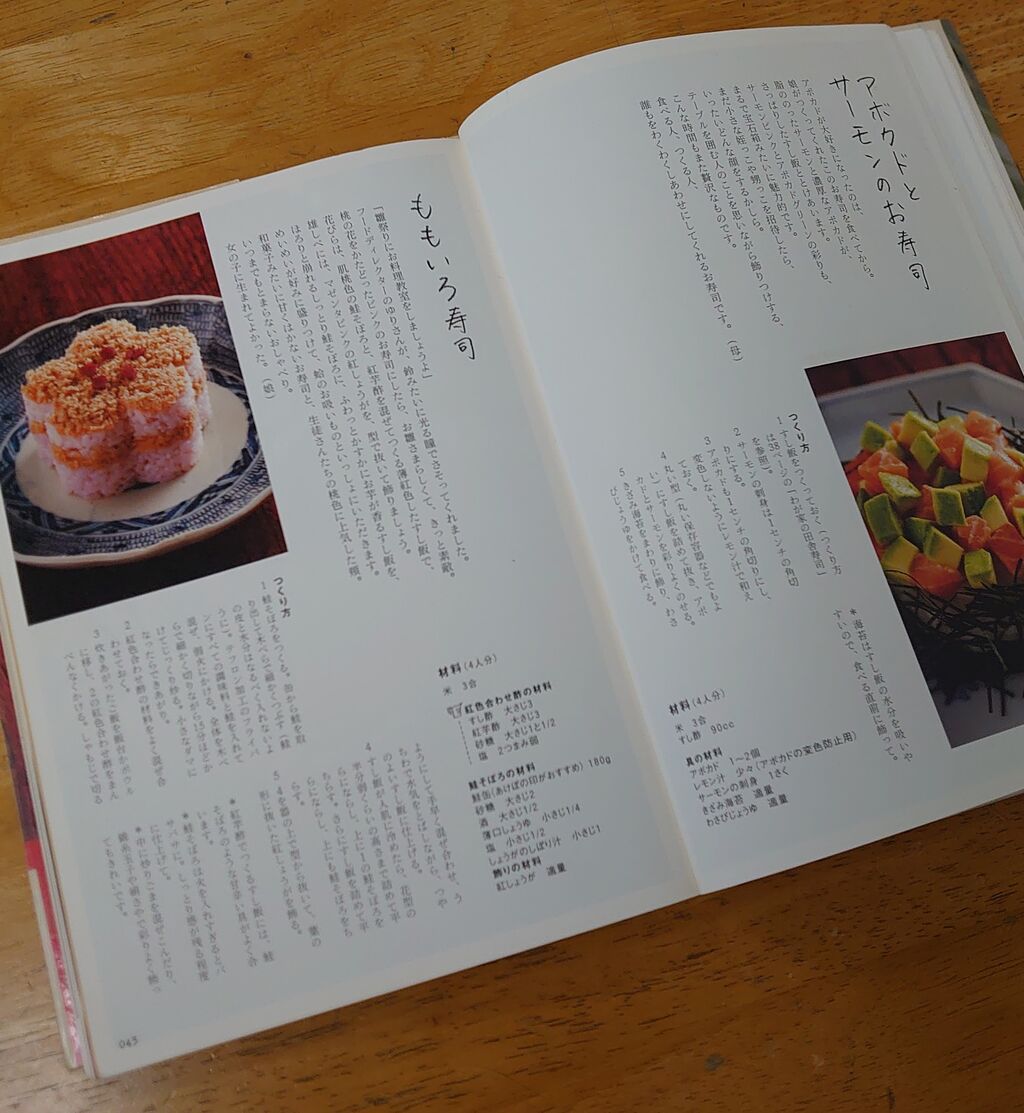 アボカドと
サーモンのお寿司
アボカドが大好きになったのは、
娘がつくってくれたこのお寿司を食べてから。
脂ののったサーモンと濃厚なアボカドが、
さっぱりしたすし飯ととけあいます。
サーモンピンクとアボカドグリーンの彩りも、
まるで宝石箱みたいに魅力的です。
まだ小さな姪っこや甥っこを招待したら、
いったいどんな顔をするかしら。
テーブルを囲む人のことを思いながら飾りつける、
こんな時間もまた贅沢なものです。
食べる人、つくる人、
誰もをわくわくしあわせにしてくれるお寿司です。(母)
つくり方
1 すし飯をつくっておく(つくり方
は38ページの「わが家の田舎寿司」
を参照)。
2 サーモンの刺身は1センチの角切
りにする。
3 アボカドも1センチの角切りにし、
変色しないようにレモン汁で和え
ておく。
4 丸い型(丸い保存容器などでもよ
い)にすし飯を詰めて抜き、アボ
カドとサーモンを彩りよくのせる。
5 きざみ海苔をまわりに飾り、わさ
びじょうゆをかけて食べる。
*海苔はすし飯の水分を吸いや
すいので、食べる直前に飾って。
材料(4人分)
米 3合
すし酢 90cc
具の材料
アボカド 1〜2個
レモン汁 少々(アボカドの変色防止用)
サーモンの刺身 1さく
きざみ海苔 適量
わさびじょうゆ 適量
ももいろ寿司
「雛祭りにお料理教室をしましょうよ」
フードディレクターのゆりさんが、鈴みたいに光る瞳でさそってくれました。
桃の花をかたどったピンクのお寿司にしたら、お雛さまらしくて、きっと素敵。
花びらは、肌桃色の鮭そぼろと、紅芋酢を混ぜてつくる薄紅色したすし飯で、
雄しべには、マゼンタピンクの紅しょうがを、型で抜いて飾りましょう。
ほろりと崩れるしっとり鮭そぼろに、ふわっとかすかにお芋が香るすし飯を、
めいめいが好みに盛りつけて、蛤のお吸いものといっしょにいただきます。
和菓子みたいに甘くはかないお寿司と、生徒さんたちの桃色に上気した頬。
いつまでもとまらないおしゃべり。
女の子に生まれてよかった。(娘)
材料(4人分)
米 3合
紅色合わせ酢の材料
すし酢 大さじ3
紅芋酢 大さじ3
砂糖 大さじ1と1/2
塩 2つまみ弱
鮭そぼろの材料
鮭缶(あけぼの印がおすすめ) 180g
砂糖 大さじ2
酒 大さじ1/2
薄口しょうゆ 小さじ1/4
塩 小さじ1/2
しょうがのしぼり汁 小さじ1
飾りの材料
紅しょうが 適量
つくり方
1 鮭そぼろをつくる。缶から鮭を取
り出して木べらで細かくつぶす(鮭
の皮と水分はなるべく入れないよ
うに)。テフロン加工のフライパ
ンにすべての調味料と鮭を入れて
混ぜ、弱火にかける。全体を木べ
らで細かく切りながら15分ほどか
けてじっくり炒る。小さなダマに
なったらできあがり。
2 紅色合わせ酢の材料をよく混ぜ合
わせておく。
3 炊きあがったご飯を飯台かボウル
に移し、2の紅色合わせ酢をまん
べんなくかける。しゃもじで切る
ようにして手早く混ぜ合わせ、う
ちわで水気をとばしながら、つや
のよいすし飯に仕上げる。
4 すし飯が人肌に冷めたら、花型の
半分弱くらいの高さまで詰めて平
らにならし、上に1の鮭そぼろを
ちらす。さらにすし飯を詰めて平
らにならし、上にも鮭そぼろをち
らす。
5 4を器の上で型から抜いて、葉の
形に抜いた紅しょうがを飾る。
*紅芋酢でつくるすし飯には、鮭
そぼろのような甘辛い具がよく合
います。
*鮭そぼろは火を入れすぎるとパ
サパサに。しっとり感が残る程度
に仕上げて。
*中に炒りごまを混ぜこんだり、
錦糸玉子や絹さやで彩りよく飾っ
てもきれいです。
043